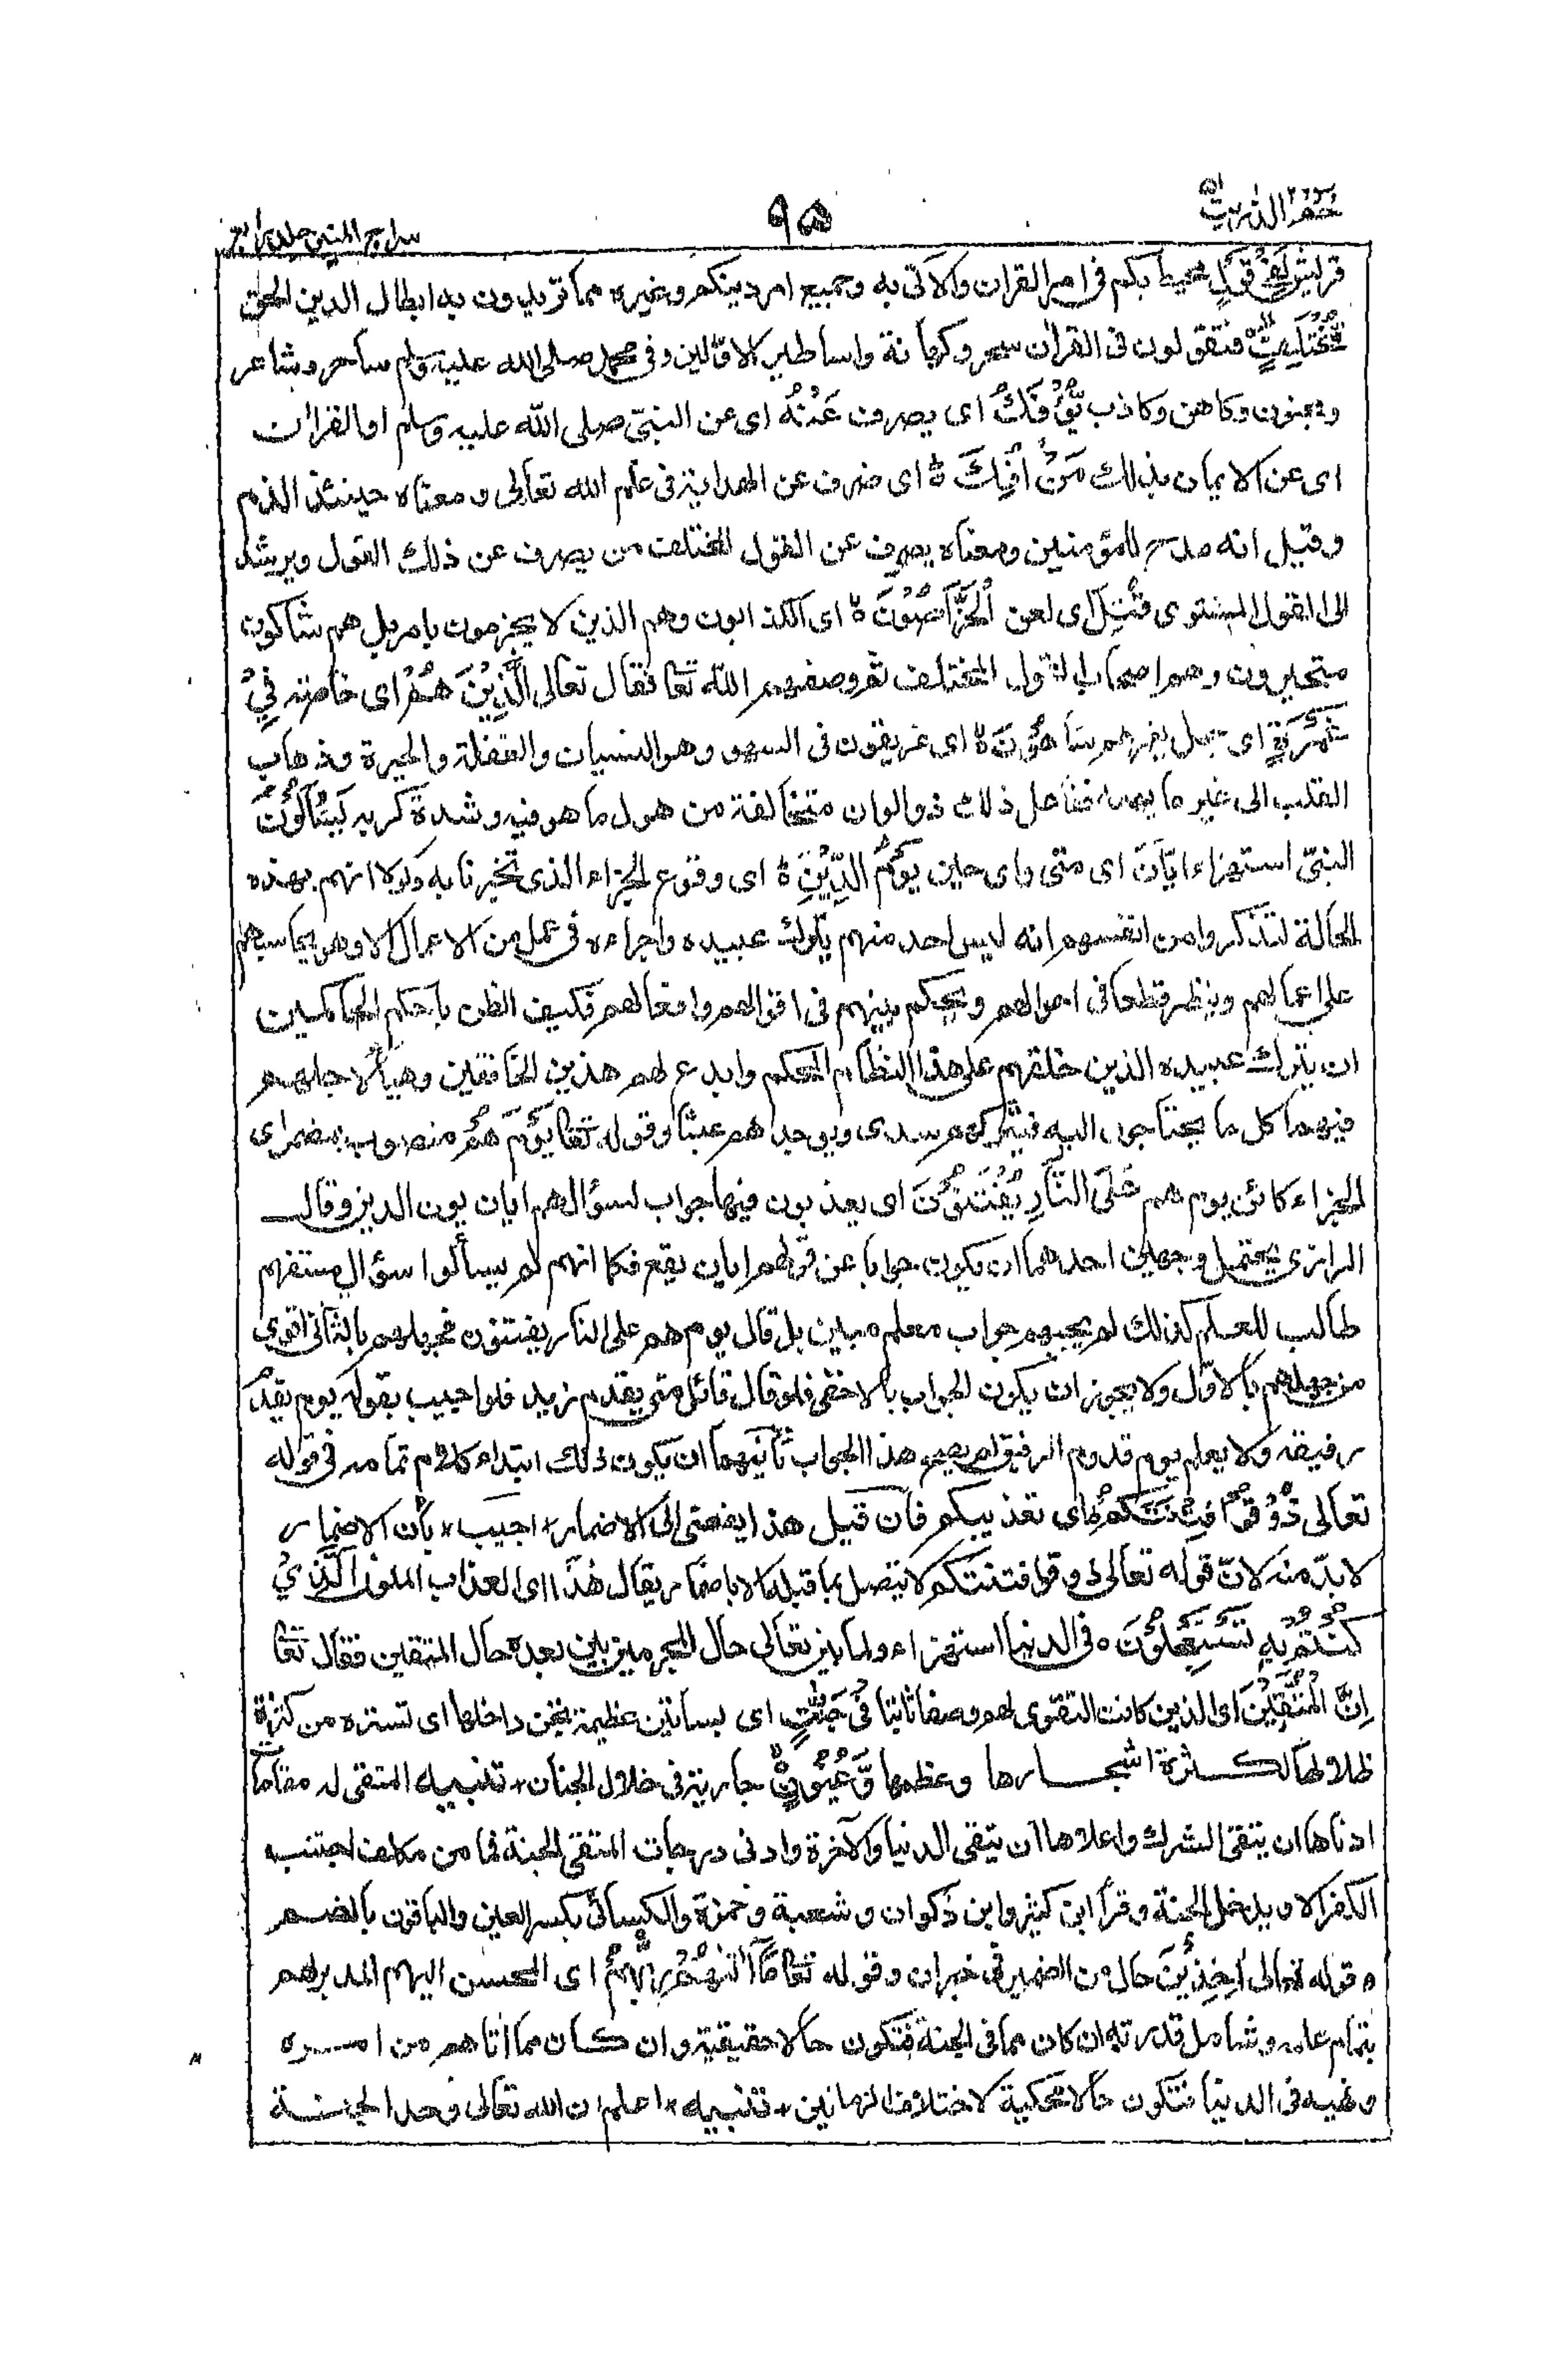 حٰم الذریت ۵۱
۹۵
سراج المنير جلد رابع
قريش لَفِيْ قَوْلٍ محيط بكم فى امر القران والاٰتى به وجميع امر دينكم وغيره مما تريدون به ابطال الدين الحق
مُّخْتَلِفٍ فتقولون فى القراٰن سحر وكهانة واساطير الاوّلين وفى محمد صلى الله عليه وسلم ساحر وشاعر
ومجنون وكاهن وكاذب يُّؤْفَكُ اى يصرف عَنْهُ اى عن النبىّ صلى الله عليه وسلم او القراٰن
اى عن الايمان بذلك مَنْ اُفِكَ ۃ اى صرف عن الهداية فى علم الله تعالى ومعناه حينئذ الذم
وقيل انه مدح للمؤمنين ومعناه يصرف عن القول المختلف من يصرف عن ذلك القول ويرشد
الى القول المستوى قُتِلَ اى لعن الْخَرَّاصُوْنَ ۃ اى الكذابون وهم الذين لا يجزمون بامر بل هم شاكون
متحيرون وهم اصحاب القول المختلف ثم وصفهم الله تعا فقال تعالى الَّذِيْنَ هُمْ اى خاصة فِيْ
غَمْرَةٍ اى جهل يغمرهم سَاهُوْنَ ۃ اى غريقون فى السهو وهو النسيان والغفلة والحيرة وذهاب
القلب الى غير ما يهمه ففاعل ذلك ذو الوان متخالفة من هول ما هو فيه وشدة كربه يَسْـَٔلُوْنَ
النبىّ استهزاء اَيَّانَ اى متى واى حين يَوْمُ الدِّيْنِ ۃ اى وقوع الجزاء الذى تخبرنا به ولولا انهم بهذه
الحالة لتذكروا من انفسهم انه ليس احد منهم يترك عبيده واجراءه فى عمل من الاعمال الا وهو يحاسبهم
على اعمالهم وينظر قطعا فى احوالهم ويحكم بينهم فى اقوالهم وافعالهم فكيف الظن باحكم الحاكمين
ان يترك عبيده الذين خلقهم على هذا النظام المحكم وابدع لهم هذين الخافقين وهيأ لاجلهم
فيهما كل ما يحتاجون اليه فيتركهم سدى ويوجدهم عبثا وقوله تعا يَوْمَ هُمْ منصوب بمضمر اى
الجزاء كائن يوم هم عَلَى النَّارِ يُفْتَنُوْنَ اى يعذبون فيها جواب لسؤالهم ايان يون الدين وقال
الرازى يحتمل وجهين احدهما ان يكون جوابا عن قولهم ايان يقع فكما انهم لم يسألوا سؤال مستفهم
طالب للعلم كذلك لم يجبهم جواب معلم مبين بل قال يوم هم على النار يفتنون فجهلهم بالثانى اقوى
من جهلهم بالاوّل ولا يجوز ان يكون الجواب بالاخفى فلو قال قائل متى يقدم زيد فلو اجيب بقوله يوم يقدم
رفيقه ولا يعلم يوم قدوم الرفيق لم يصح هذا الجواب ثانيهما ان يكون ذلك ابتداء كلام تمامه فى قوله
تعالى ذُوْقُوْا فِتْنَتَكُمْ ط اى تعذيبكم فان قيل هذا يفضى الى الاضمار + اجيب + بأن الاضمار
لا بدّ منه لانّ قوله تعالى ذوقوا فتنتكم لا يتصل بما قبله الا باضمار يقال هٰذَا اى العذاب الملون الَّذِيْ
كُنْتُمْ بِهٖ تَسْتَعْجِلُوْنَ ه فى الدنيا استهزاء ولما بين تعالى حال المجرمين بين بعده حال المتقين فقال تعا
اِنَّ الْمُتَّقِيْنَ اى الذين كانت التقوى لهم وصفا ثابتا فِيْ جَنّٰتٍ اى بساتين عظيمة تجن داخلها اى تستره من كثرة
ظلالها لكثرة اشجارها وعظمها وَّعُيُوْنٍ جارية فى خلال الجنان + تنبيه المتقى له مقاما
ادناها ان يتقى الشرك واعلاها ان يتقى الدنيا والاخرة وادنى درجات المتقى الجنة فما من مكلف اجتنب
الكفر الا ويدخل الجنة وقرأ ابن كثير وابن ذكوان وشعبة وحمزة والكسائى بكسر العين والباقون بالضم
وقوله تعالى اٰخِذِيْنَ حال من الضمير فى خبر ان وقوله تعا مَآ اٰتٰىهُمْ رَبُّهُمْ اى المحسن اليهم المدبر لهم
بتمام علمه وشامل قدرته ان كان مما فى الجنة فتكون حالا حقيقية وان كان مما اٰتاهم من امره
ونهيه فى الدنيا فتكون حالا محكية لاختلاف الزمانين + تنبيه + اعلم ان الله تعالى وحد الجنة